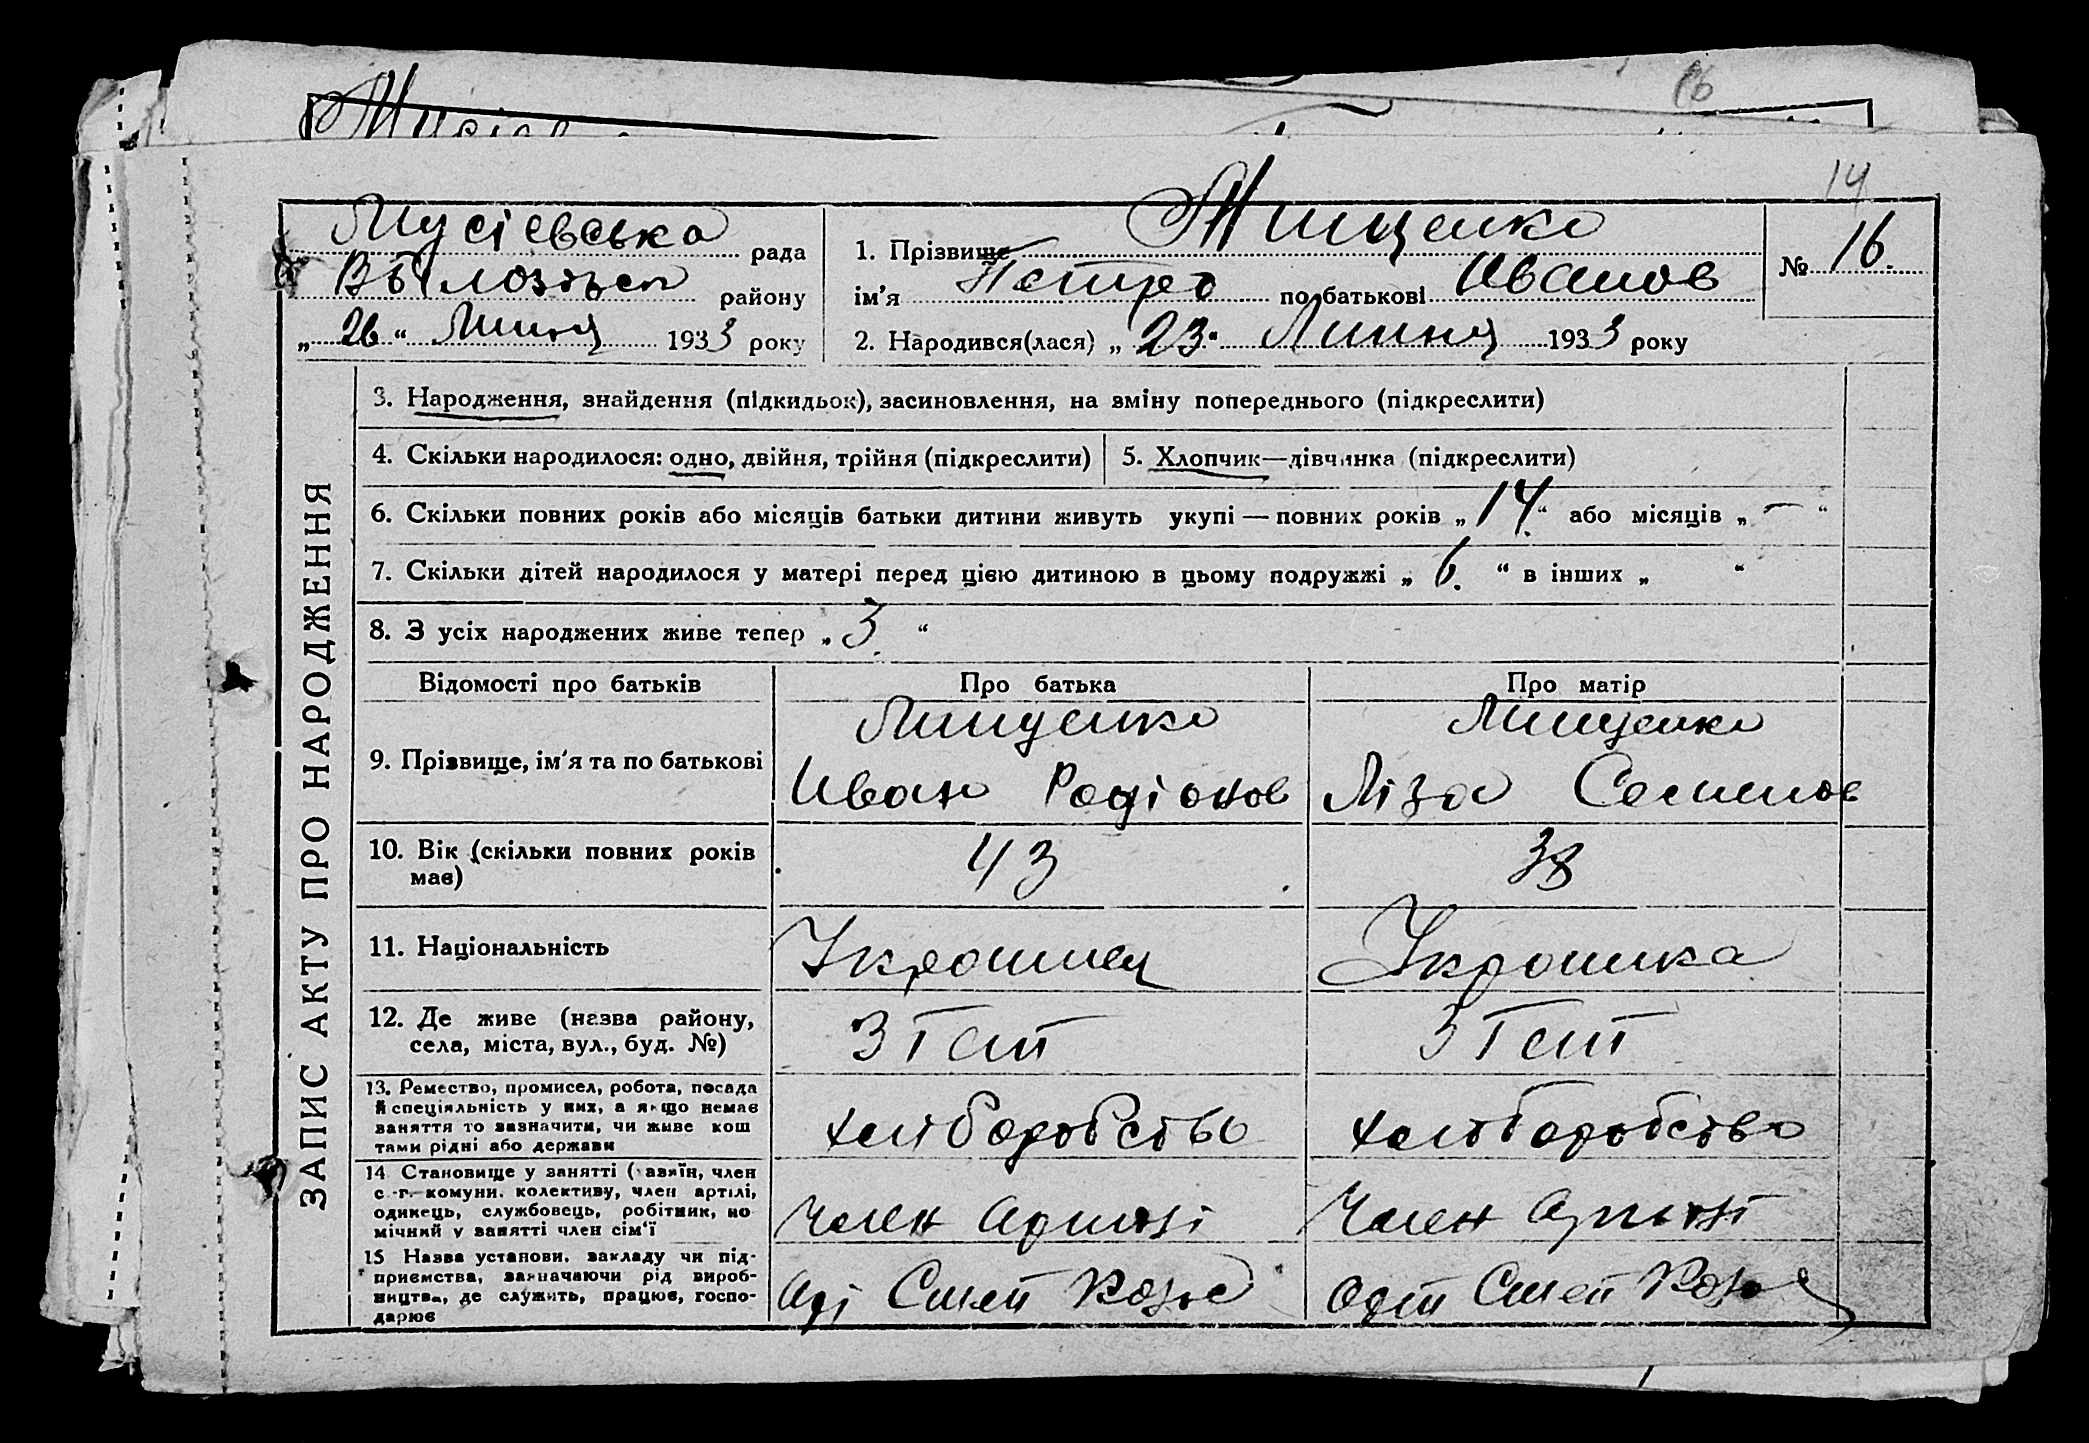 16
14
Мусіевська рада
району
„ 26 “ Липня 1933 року
1. Прізвище Тищенко
ім'я Петро по батькові Иванов
2. Народився(лася) „ 23 “ Липня 1933 року
№ 16.
ЗАПИС АКТУ ПРО НАРОДЖЕННЯ
3. Народження, знайдення (підкидьок), засиновлення, на зміну попереднього (підкреслити)
4. Скільки народилося: одно, двійня, трійня (підкреслити)
5. Хлопчик—дівчинка (підкреслити)
6. Скільки повних років або місяців батьки дитини живуть укупі — повних років „ 14 “ або місяців „ — “
7. Скільки дітей народилося у матері перед цією дитиною в цьому подружжі „ 6. “ в інших „ “
8. З усіх народжених живе тепер „ 3 “
Відомості про батьків Про батька Про матір
9. Прізвище, ім'я та по батькові
Иван Родіонов
Ліза Семенов
10. Вік (скільки повних років
має)
43
38
11. Національність
Украинец
Украинка
12. Де живе (назва району,
села, міста, вул., буд. №)
13. Ремество, промисел, робота, посада
й спеціяльність у них, а якщо немає
заняття то зазначити, чи живе кош
тами рідні або держави
хліборобство
хліборобство
14 Становище у занятті (хазяїн, член
с.-г. комуни, колективу, член артілі,
одинець, службовець, робітник, по
мічний у занятті член сім'ї
Член Артілі
Член Артілі
15 Назва установи, закладу чи під-
приємства, зазначаючи рід вироб-
ництва, де служить, працює, госпо-
дарює